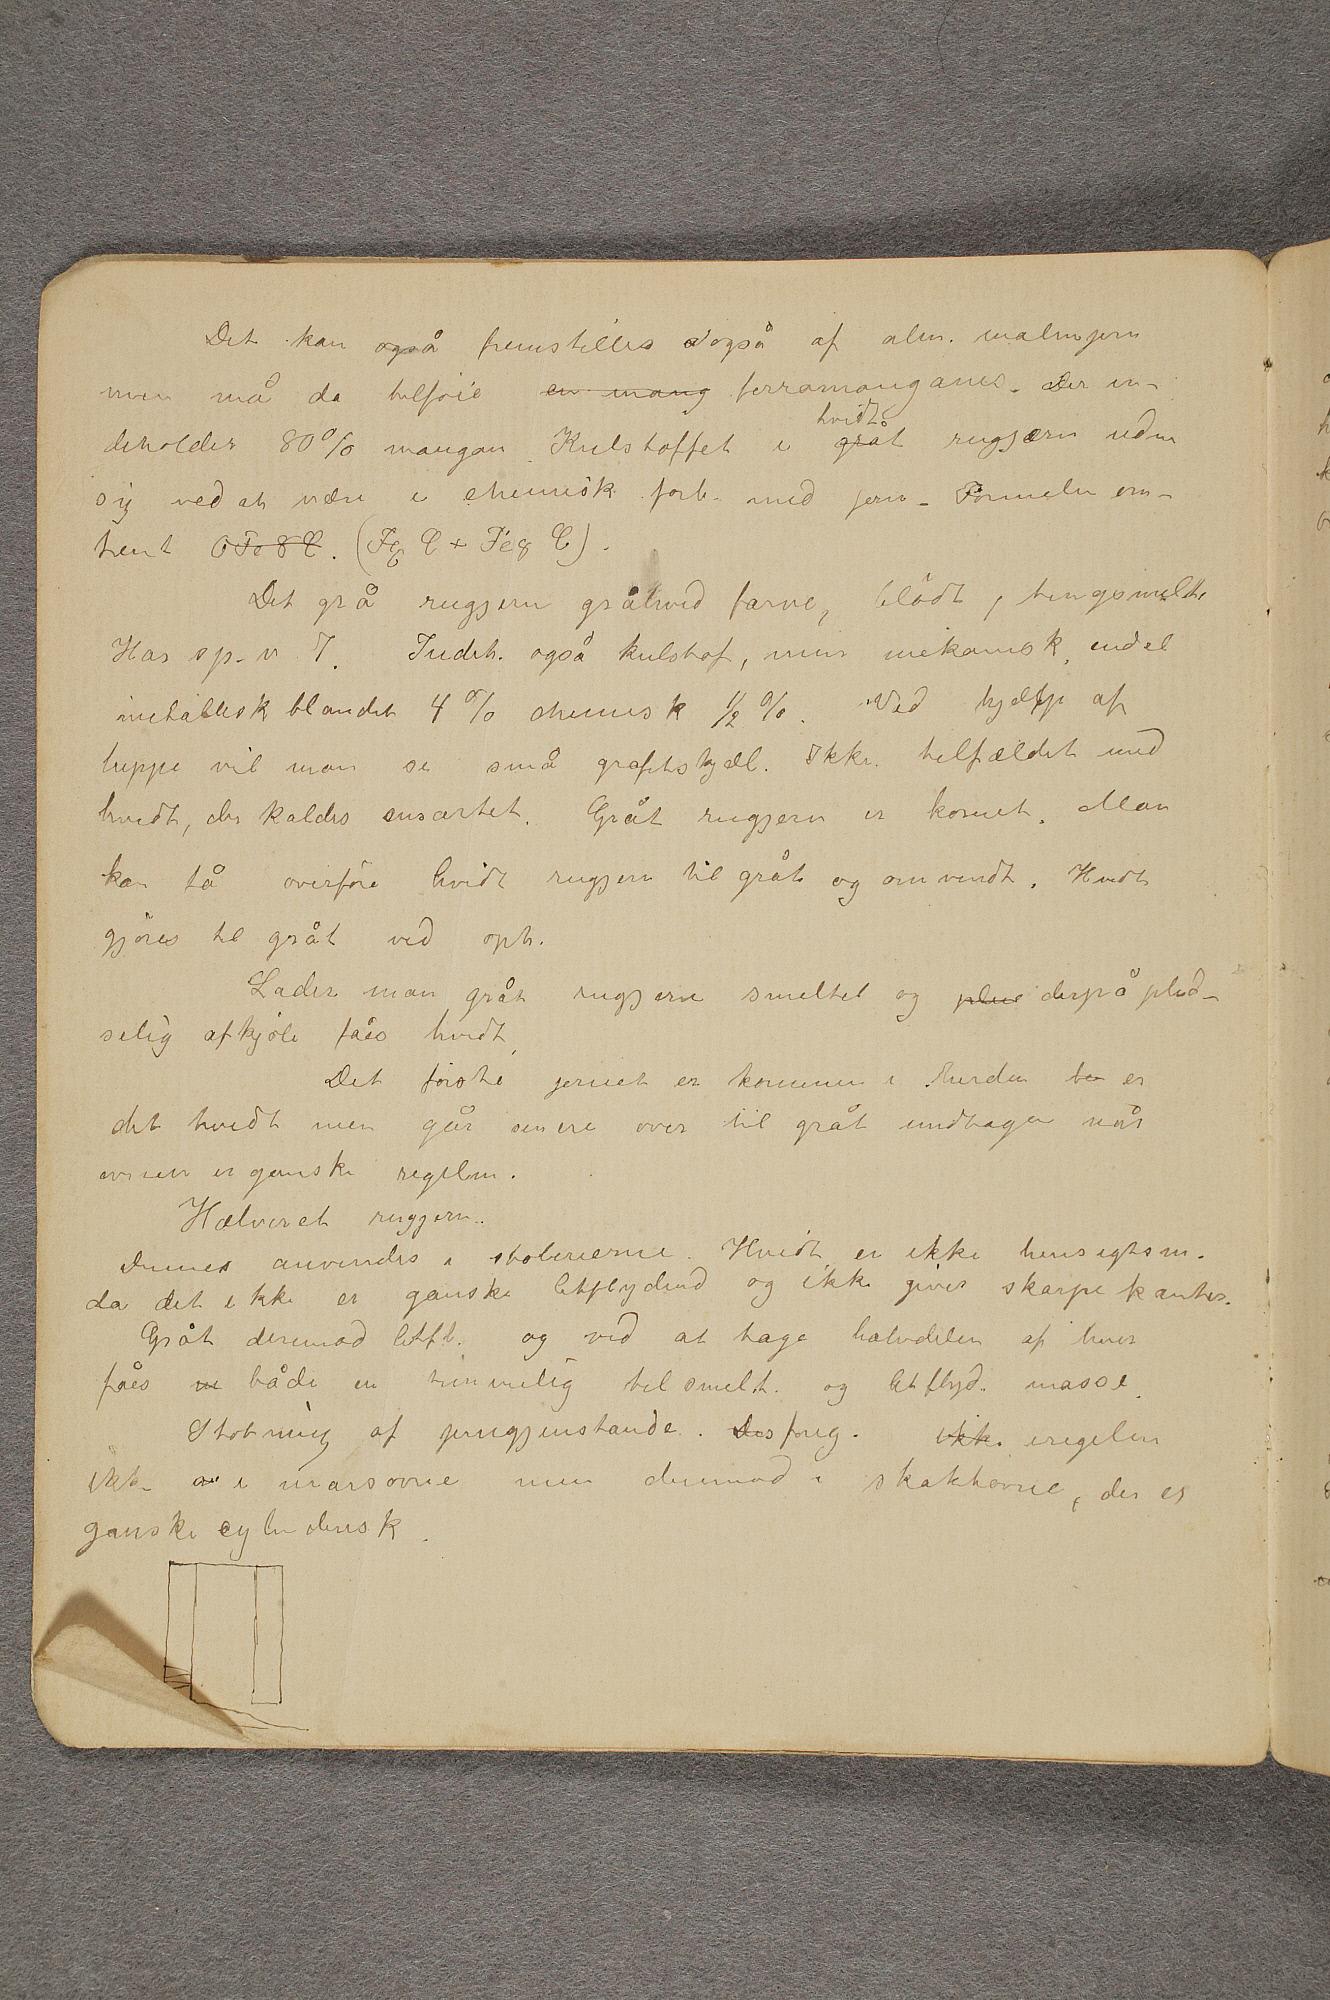 Det kan også fremstilles også af alm. malmjern
men må da tilføie en mang ferromanganes. Der in-
deholder 80% mangan. Kulstoffet i gråt hvidt rugjærn udm
sig ved at være i chemisk forb. med jern. Formelen om-
trent 6Fe8C. (Fe6 C + Fe8 C).
Det grå rugjern gråhvid farve, blödt, tungsmelt.
Har sp. v 7. Indeh. også kulstof, men mekanisk, endel
metallisk blandet 4% chemisk 1/2%. Ved hjælp af
luppe vil man se små grafitskjæl. Ikke tilfældet med
hvidt, der kaldes ensartet. Gråt rugjern er kornet. Man
kan få overföre hvidt rugjern til gråt og omvendt. Hvidt
gjöres til gråt ved oph.
Lader man gråt rugjern smeltet og plud derpå plud-
selig afkjöle fåes hvidt.
Det förste jernet er kommen i er
det hvidt men går senere over til gråt undtagen når
ovnen er ganske regelm.
Halveret rugjern.
Denne anvendes i stöberierne. Hvidt er ikke hensigtsm.
da det ikke er ganske letflydend og ikke giver skarpe kanter.
Gråt derimod letfl. og ved at tage halvdelen af hver
fåes både en temmelig telsmelt. og letflyd. masse.
Stöbning af jerngjenstande. foreg. ikke iregelen
ikke i masovne men derimod i skaktovne, der er
ganske cylindrisk.